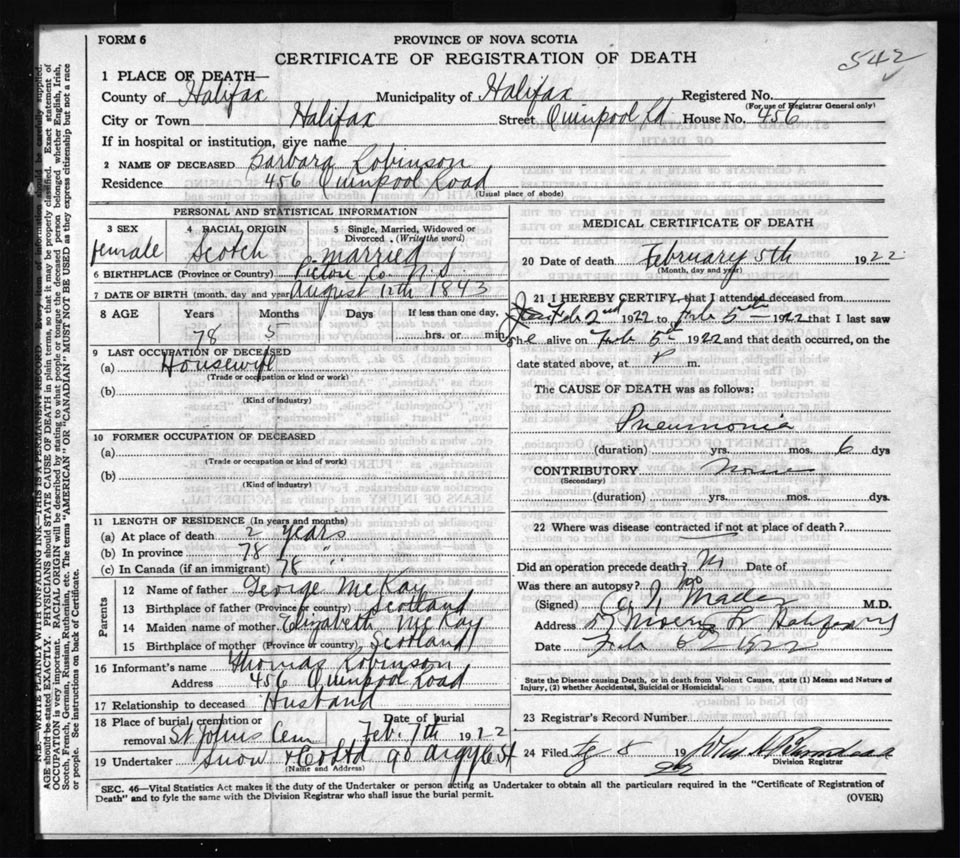 FORM 6
PROVINCE OF NOVA SCOTIA
542
CERTIFICATE OF REGISTRATION OF DEATH
1 PLACE OF DEATH—
County of Halifax Municipality of Halifax Registered No.
(For use of Registrar General only)
City or Town Halifax Street Quinpool Rd House No. 456
If in hospital or institution, give name
2 NAME OF DECEASED Barbara Robinson
Residence 456 Quinpool Road
(Usual place of abode)
PERSONAL AND STATISTICAL INFORMATION
3 SEX 4 RACIAL ORIGIN 5 Single, Married, Widowed or
Divorced (Write the word)
Female Scotch Married
6 BIRTHPLACE (Province or Country) Pictou Co N.S.
7 DATE OF BIRTH (month, day and year) August 12th 1843
8 AGE Years Months Days If less than one day,
78 5 hrs. or min.
9 LAST OCCUPATION OF DECEASED
(a) Housewife
(Trade or occupation or kind of work)
(b)
(Kind of industry)
10 FORMER OCCUPATION OF DECEASED
(a)
(Trade or occupation or kind of work)
(b)
(Kind of industry)
11 LENGTH OF RESIDENCE (In years and months)
(a) At place of death 2 years
(b) In province 78 "
(c) In Canada (if an immigrant) 78 "
Parents
12 Name of father George McKay
13 Birthplace of father (Province or country) Scotland
14 Maiden name of mother Elizabeth McKay
15 Birthplace of mother (Province or country) Scotland
16 Informant's name Thomas Robinson
Address 456 Quinpool Road
17 Relationship to deceased Husband
18 Place of burial, cremation or Date of burial
removal St Johns Cem Feb. 7th 192
19 Undertaker Snow & Co Ltd 90 Argyle St
(Name and Address)
MEDICAL CERTIFICATE OF DEATH
20 Date of death February 5th 1922
(Month, day and year)
21 I HEREBY CERTIFY, that I attended deceased from
Feb 2nd 1922 to Feb 5th 1922 that I last saw
She alive on Feb 5th 1922 and that death occurred, on
date stated above, at P m.
The CAUSE OF DEATH was as follows:
Pneumonia
(duration) yrs. mos. 6 dys
CONTRIBUTORY None
(Secondary)
(duration) yrs. mos. dys.
22 Where was disease contracted if not at place of death?
Did an operation precede death? No Date of
Was there an autopsy? No
(Signed) Mader M.D.
Address 57 Morris St Halifax
Date Feb 6 1922
State the Disease causing Death, or in death from Violent Causes, state (1) Means and Nature of
Injury, (2) whether Accidental, Suicidal or Homicidal.
23 Registrar's Record Number
24 Filed 8 19
22
Division Registrar
SEC. 46—Vital Statistics Act makes it the duty of the Undertaker or person acting as Undertaker to obtain all the particulars required in the "Certificate of Registration of
Death" and to fyle the same with the Division Registrar who shall issue the burial permit.
(OVER)
N.B.—WRITE PLAINLY WITH UNFADING INK—THIS IS A PERMANENT RECORD. Every item of information should be carefully supplied.
AGE should be stated EXACTLY. PHYSICIANS should STATE CAUSE OF DEATH in plain terms, so that it may be properly classified. Exact statement of
OCCUPATION is very important. RACIAL ORIGIN will be described by stating to what people or tongue the deceased person belonged whether English, Irish,
Scotch, French, German, Russian, Ruthenian, etc. The terms "AMERICAN" OR "CANADIAN" MUST NOT BE USED as they express citizenship but not a race
or people. See instructions on back of Certificate.